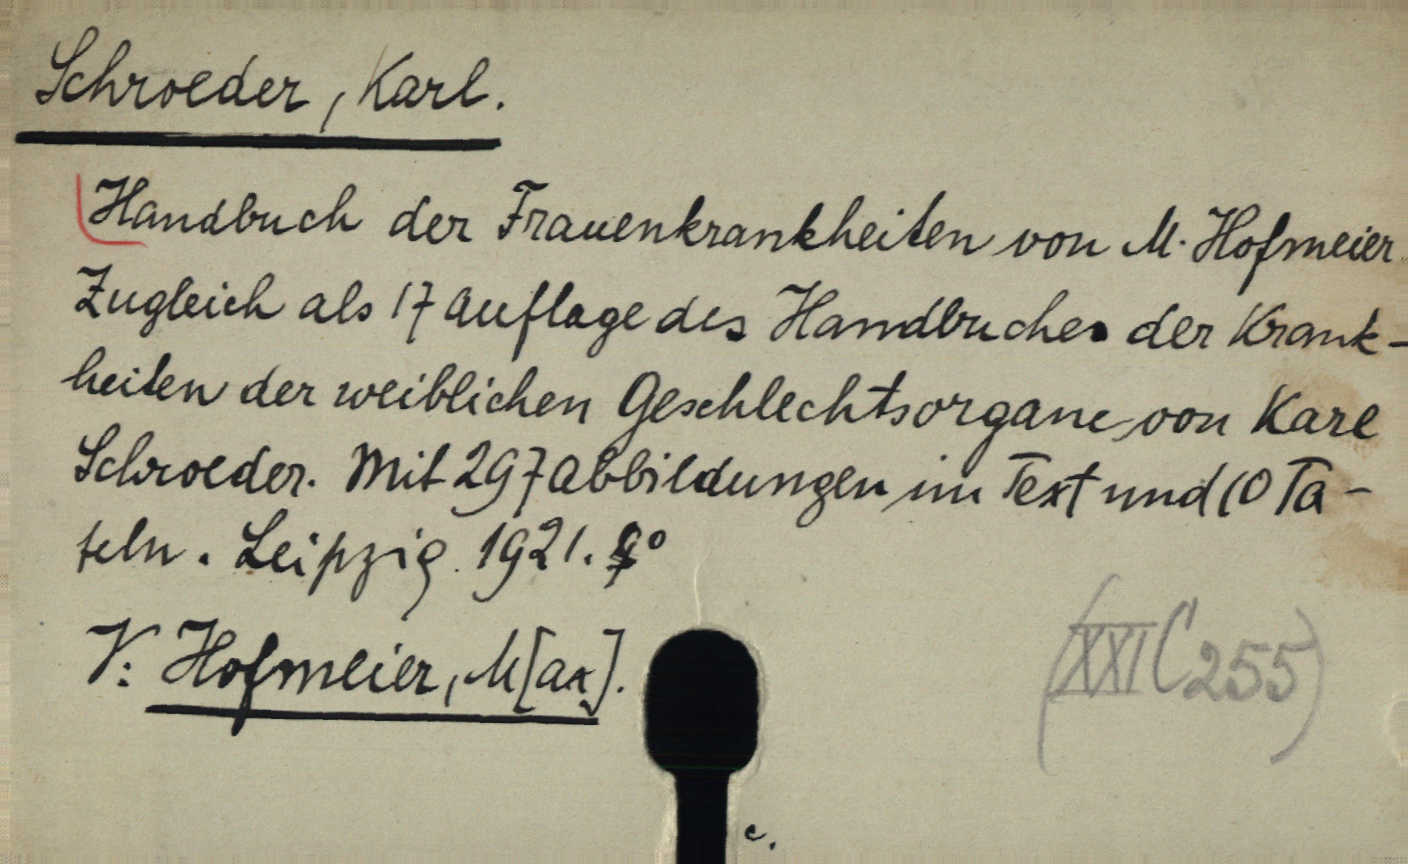 Schroeder, Karl.
Handbuch der Frauenkrankheiten von M. Hofmeier.
Zugleich als 17 Auflage des Handbuches der Krank-
heiten der weiblichen Geschlechtsorgane von Karl
Schroeder. Mit 297 Abbildungen im Text und 10 Ta-
feln. Leipzig. 1921.
V: Hofmeier, M[ax].
(XXI C 255)
c.